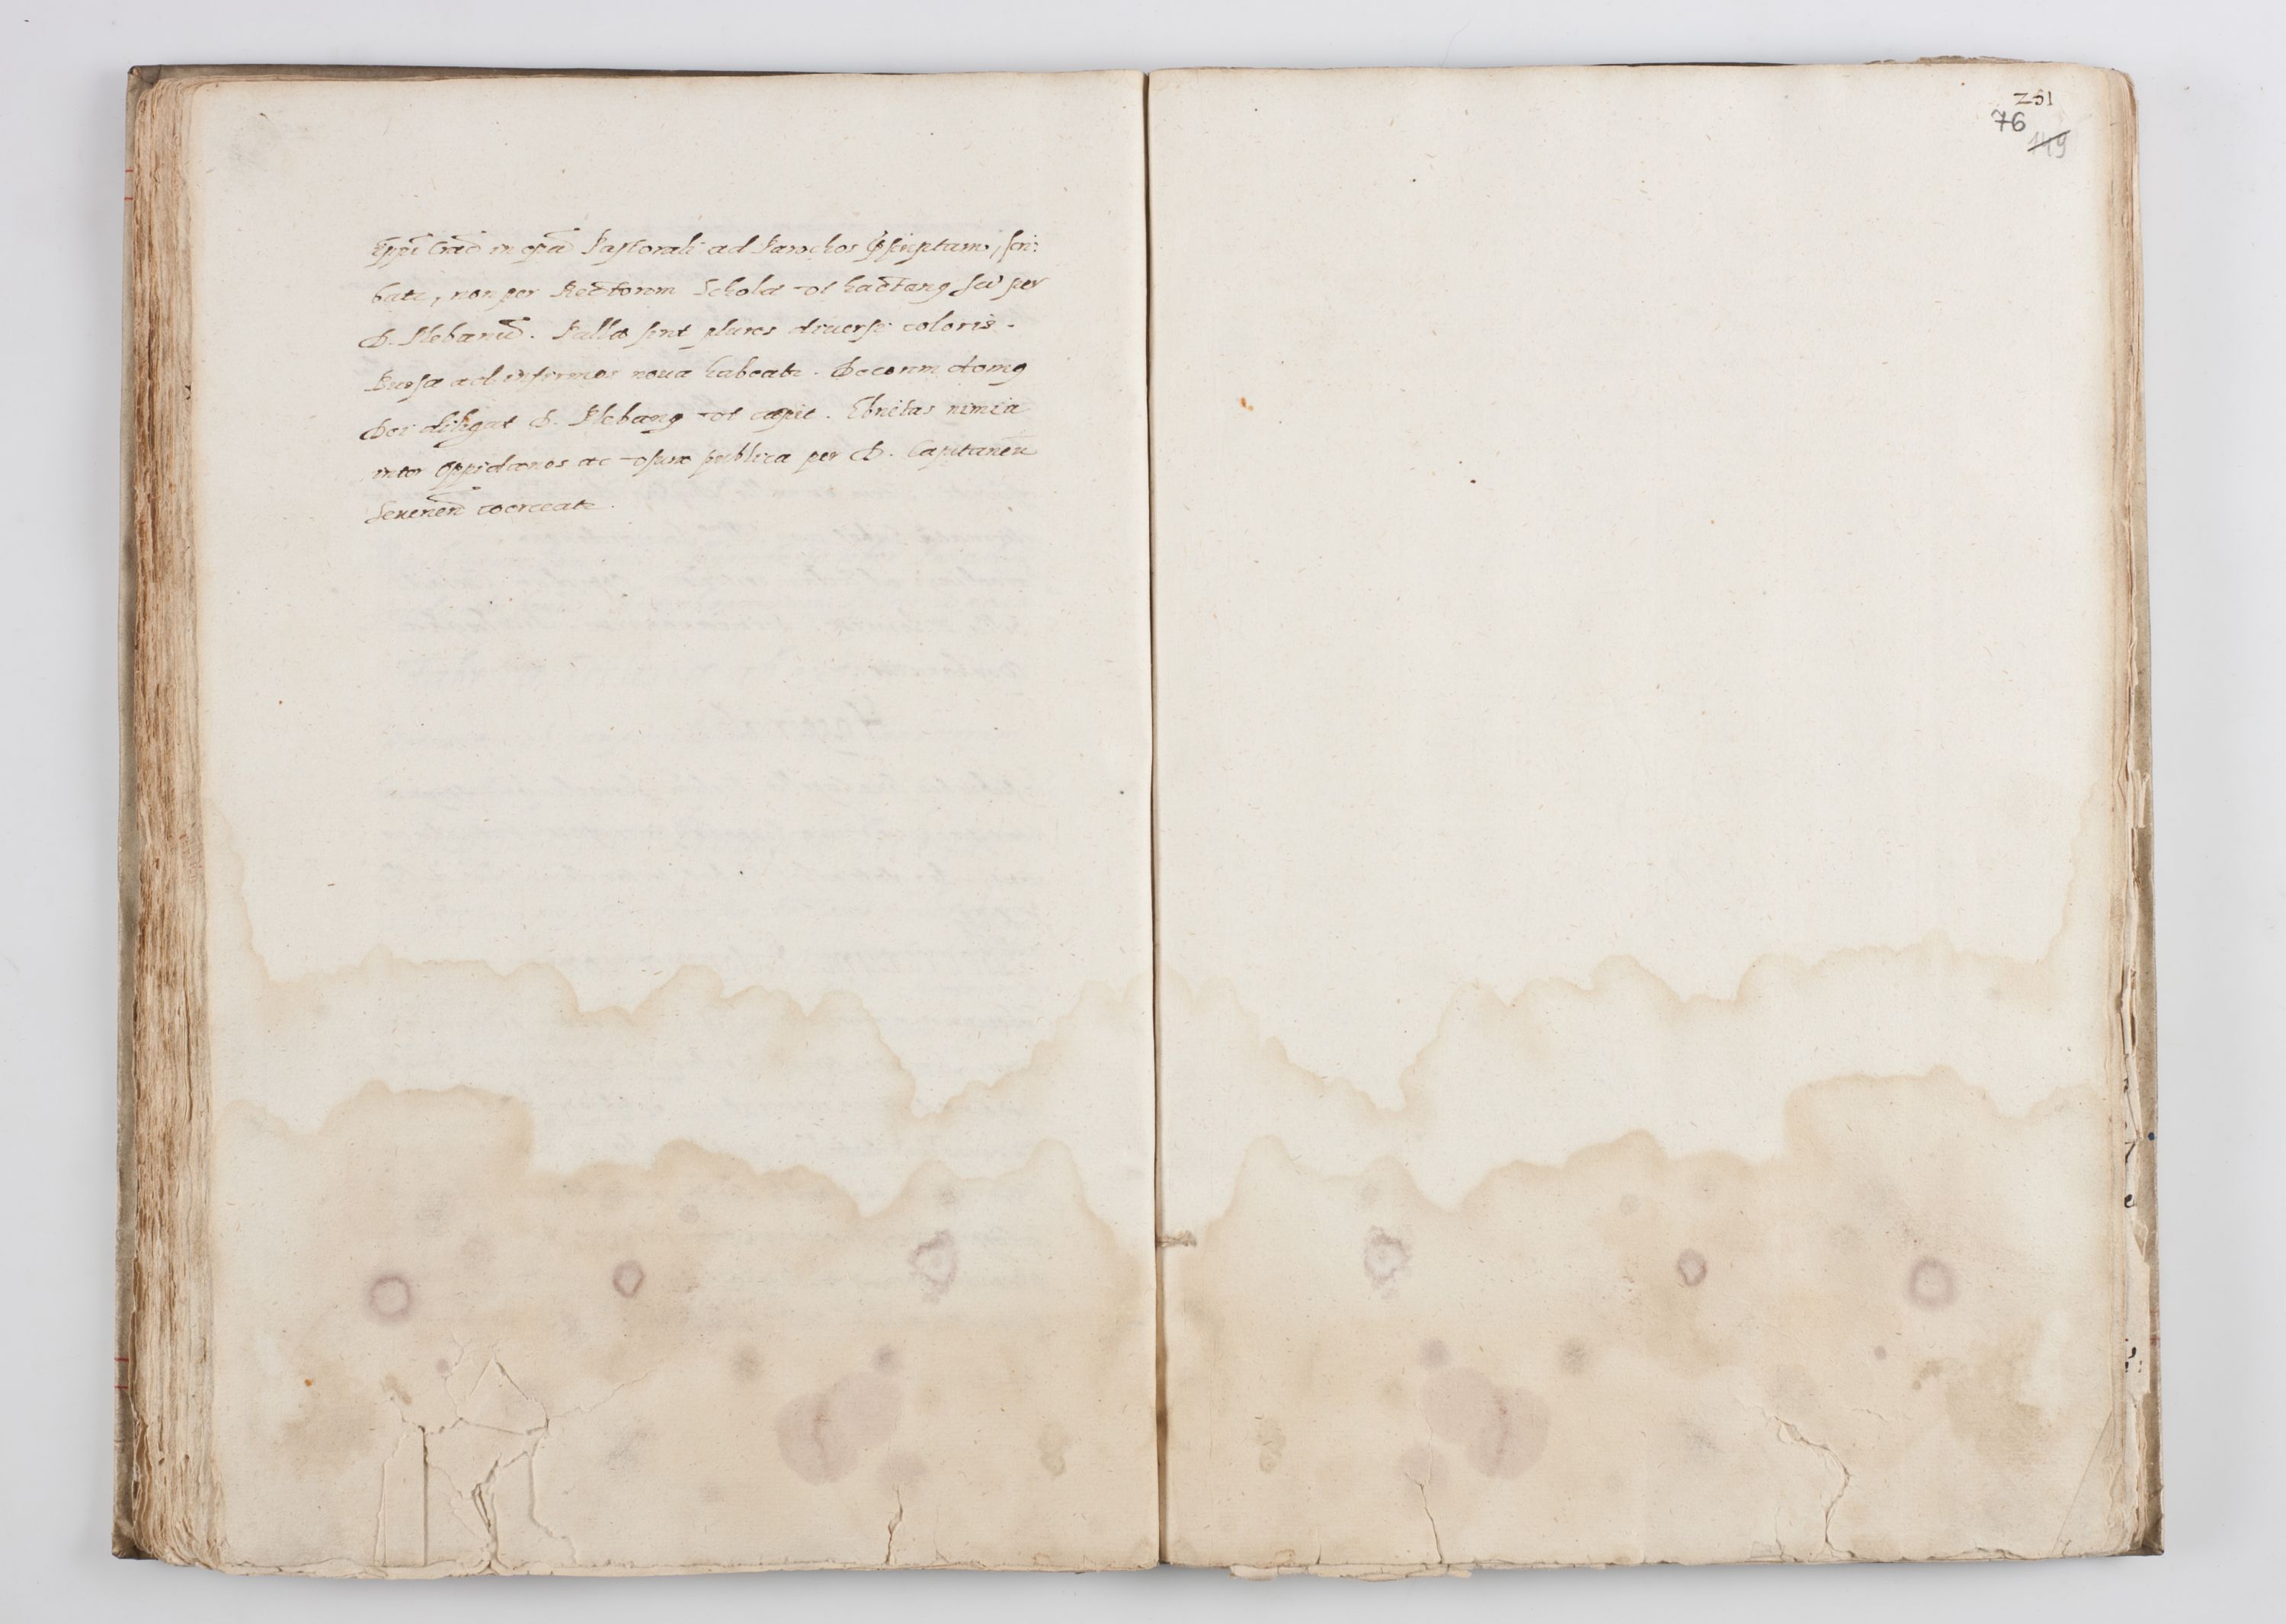 Eppi Crac̃ in ep̃la Pastorali ad Parochos p̃scriptam, scri:
batr, non per Rectorem Scholæ ut hactenꝯ sed per
D. Plebanũ. Pallæ sint plures diuersi coloris.
Bursa ad infirmos noua habeatr. Decorem domꝯ
Dei diligat D. Plebanꝯ ut cæpit. Ebrietas nimia
inter Oppidanos ac usuræ publica per D. Capitaneũ
Seuerien̄ coerceatr.
251
76
149